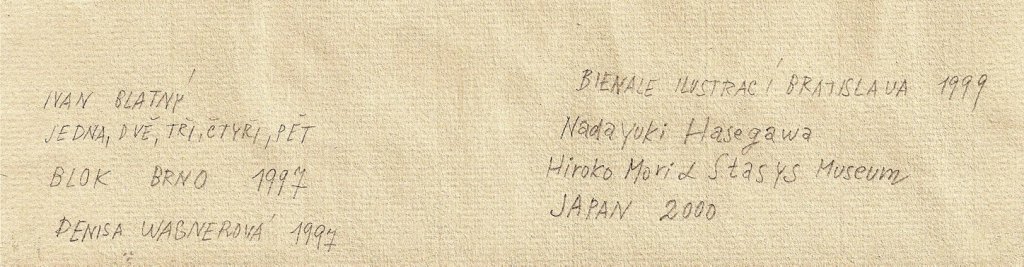 IVAN BLATNÝ
JEDNA, DVĚ, TŘI, ČTYŘI, PĚT
BLOK BRNO 1997
DENISA WAGNEROVÁ 1997
BIENALE ILUSTRACÍ BRATISLAVA 1999
Nadayuki Hasegawa
Hiroko Mori & Stasys Museum
JAPAN 2000